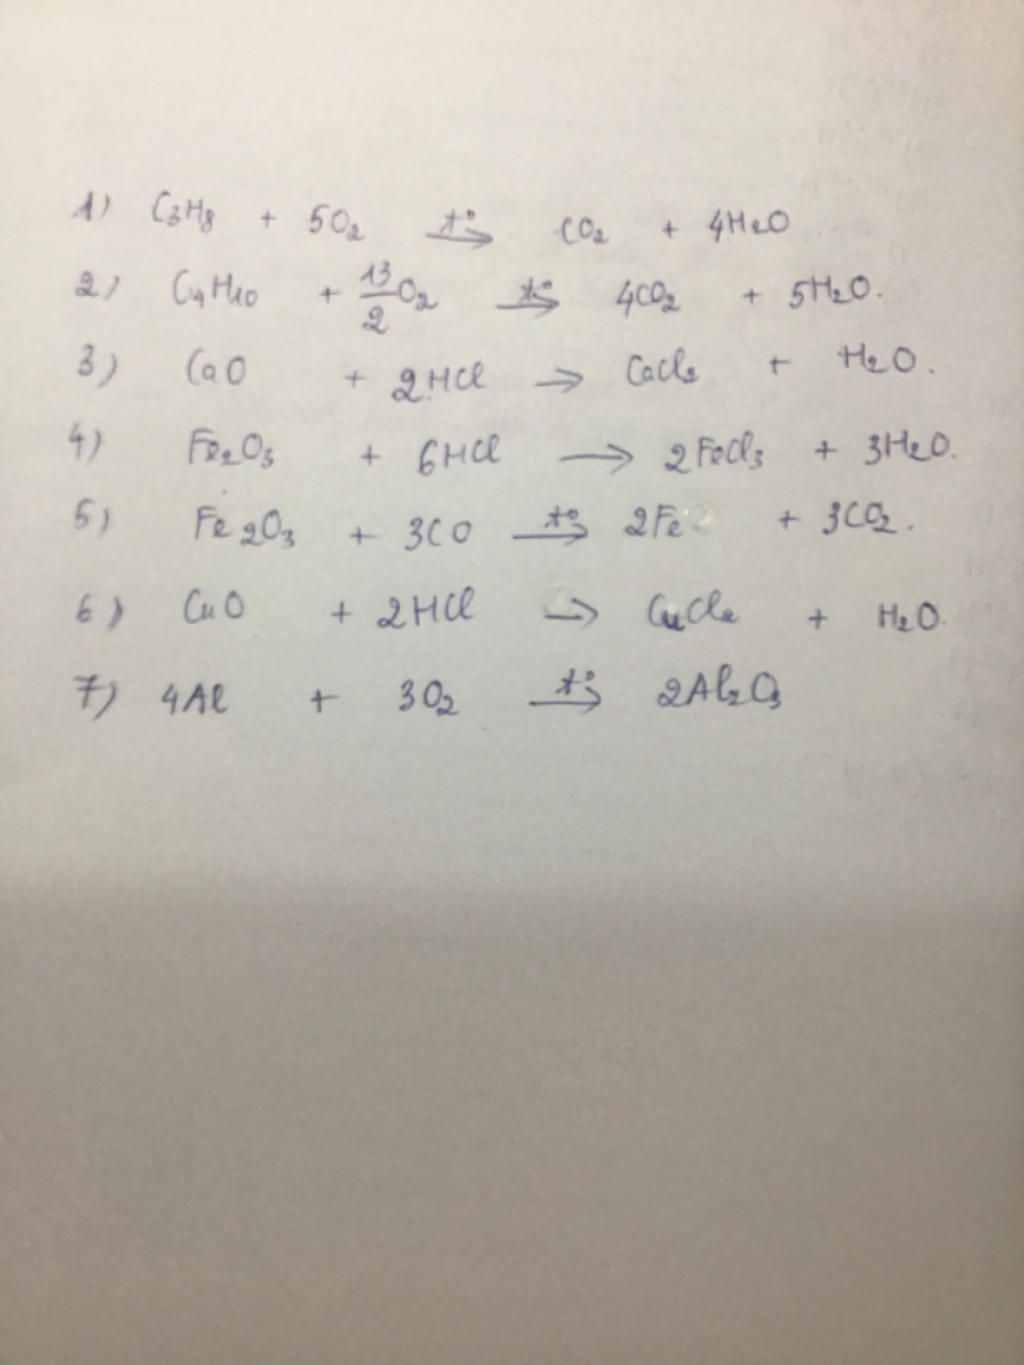 1) C3H8 + 5O2 t°→ CO2 + 4H2O
2) C4H10 + 13/2 O2 t°→ 4CO2 + 5H2O.
3) CaO + 2HCl → CaCl2 + H2O.
4) Fe2O3 + 6HCl → 2FeCl3 + 3H2O.
5) Fe2O3 + 3CO t°→ 2Fe + 3CO2.
6) CuO + 2HCl → CuCl2 + H2O.
7) 4Al + 3O2 t°→ 2Al2O3